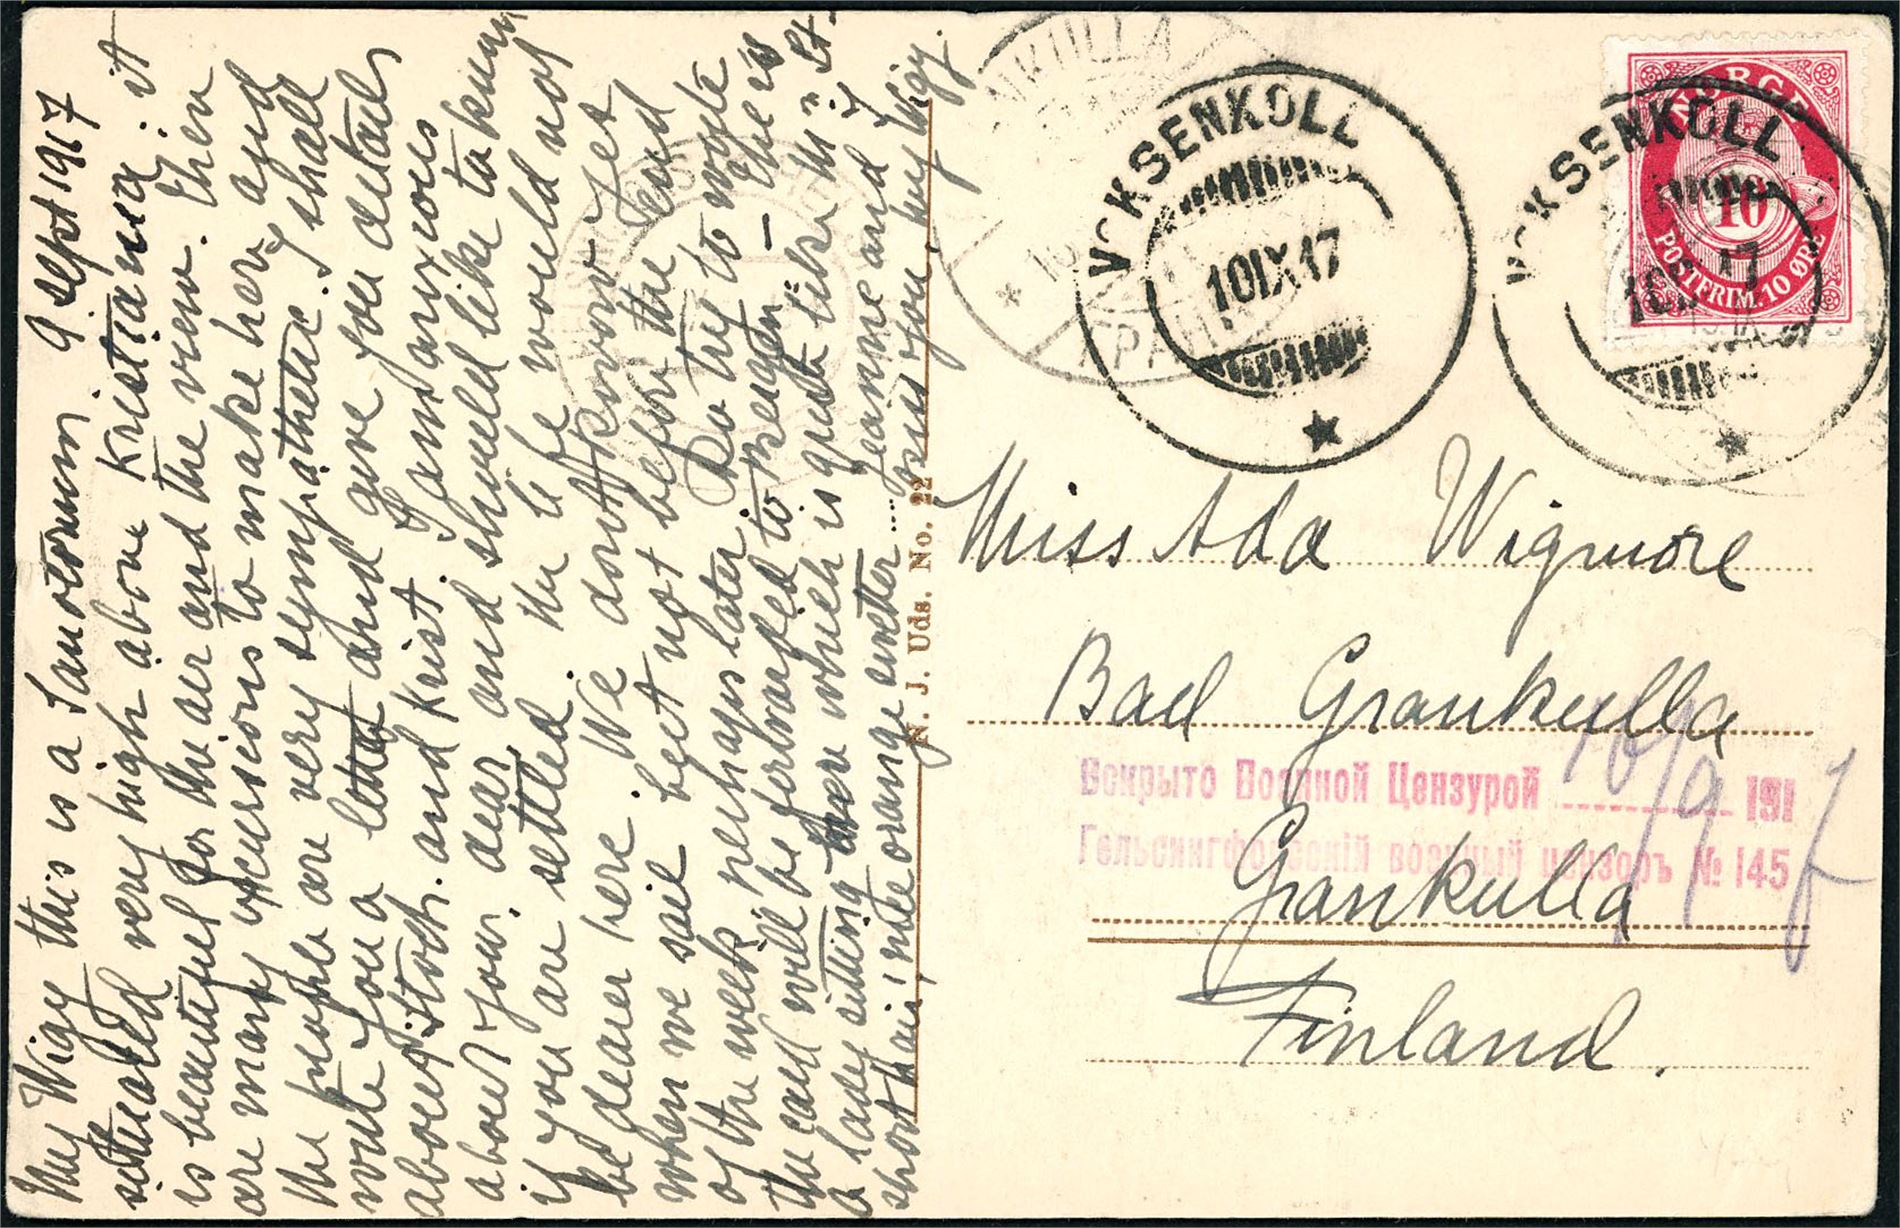 9 Sept 1917
My Wigy this is a Sanotorium
situated very high above Kristiania: it
is beautiful for the air and the view. then
are many excursions to make here and
the people are very sympathetic. I shall
write you a letter and give you details
about Stoch. and Krist. I am anxious
about you. dear, and should like to know
if you are settled. the te would not
be dearer here. We dont know yet
when we sail but not before the end
of the week perhaps later. Do try to write
the card will be forwarded to Bergen – there is
a lady sitting here which is quite like "M" St.
short hair, nice orange sweater .... Jeanne and I
kiss you, my Wigy.
N. J. Uds. No. 22
GRANKULLA
ГРАН
VOKSENKOLL
10 IX 17
VOKSENKOLL
10 IX 17
NORGE
10
POSTFRIM. 10 ØRE
Miss Ada Wigmore
Bad Grankulla
Вскрыто Военной Цензурой 16/9 1917
Гельсингфорсскій военный цензоръ № 145
Grankulla
Finland.